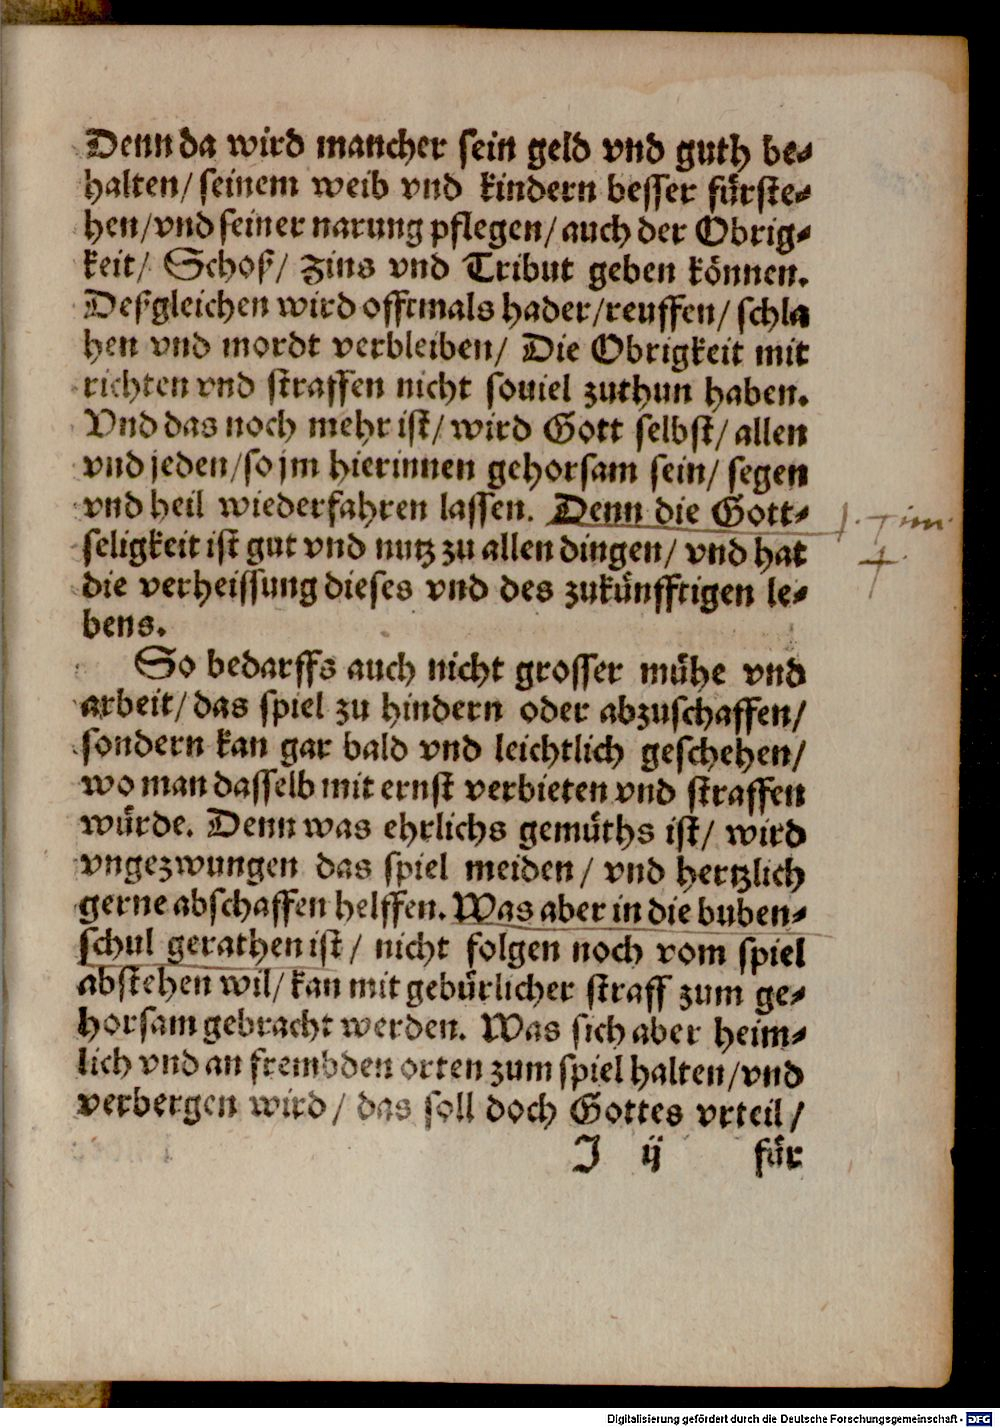 Denn da wird mancher sein geld vnd guth be⸗
halten/ seinem weib vnd kindern besser fürste⸗
hen/ vnd seiner narung pflegen/ auch der Obrig⸗
keit/ Schoß/ Zins vnd Tribut geben können.
Deßgleichen wird offtmals hader/ reuffen/ schla
hen vnd mordt verbleiben/ Die Obrigkeit mit
richten vnd straffen nicht souiel zuthun haben.
Vnd das noch mehr ist/ wird Gott selbst/ allen
vnd jeden/ so jm hierinnen gehorsam sein/ segen
vnd heil wiederfahren lassen. Denn die Gott⸗
seligkeit ist gut vnd nutz zu allen dingen/ vnd hat
die verheissung dieses vnd des zukünfftigen le⸗
bens.
1. Tim.
4.
So bedarffs auch nicht grosser mühe vnd
arbeit/ das spiel zu hindern oder abzuschaffen/
sondern kan gar bald vnd leichtlich geschehen/
wo man dasselb mit ernst verbieten vnd straffen
würde. Denn was ehrlichs gemüths ist/ wird
vngezwungen das spiel meiden/ vnd hertzlich
gerne abschaffen helffen. Was aber in die buben⸗
schul gerathen ist/ nicht folgen noch vom spiel
abstehen wil/ kan mit gebürlicher straff zum ge⸗
horsam gebracht werden. Was sich aber heim⸗
lich vnd an frembden orten zum spiel halten/ vnd
verbergen wird/ das soll doch Gottes vrteil/
J ij für
Digitalisierung gefördert durch die Deutsche Forschungsgemeinschaft - DFG